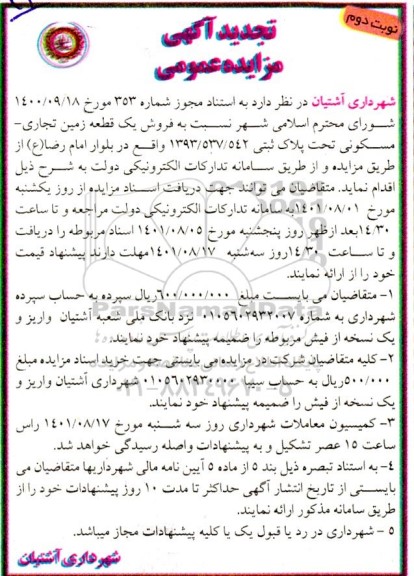 نوبت دوم
تجدید آگهی
مزایده عمومی
شهرداری آشتیان در نظر دارد به استناد مجوز شماره ۳۵۳ مورخ ۱۴۰۰/۰۹/۱۸
شورای محترم اسلامی شهر نسبت به فروش یک قطعه زمین تجاری-
مسکونی تحت پلاک ثبتی ۱۳۹۳/۵۳۷/۵۴۲ واقع در بلوار امام رضا(ع) از
طریق مزایده و از طریق سامانه تدارکات الکترونیکی دولت به شرح ذیل
اقدام نماید. متقاضیان می توانند جهت دریافت اسناد مزایده از روز یکشنبه
مورخ ۱۴۰۱/۰۸/۰۱به سامانه تدارکات الکترونیکی دولت مراجعه و تا ساعت
۱۴:۳۰بعد ازظهر روز پنجشنبه مورخ ۱۴۰۱/۰۸/۰۵ اسناد مربوطه را دریافت
و تا ساعت۱۴:۳۰روز سه‌شنبه ۱۴۰۱/۰۸/۱۷مهلت دارند پیشنهاد قیمت
خود را از ارائه نمایند.
۱- متقاضیان می بایست مبلغ ۶۰۰/۰۰۰/۰۰۰ریال سپرده به حساب سپرده
شهرداری به شماره ۰۱۰۵۶۰۲۹۳۲۰۰۷ نزد بانک ملی شعبه آشتیان واریز و
یک نسخه از فیش مربوطه را ضمیمه پیشنهاد خود نمایند.
۲- کلیه متقاضیان شرکت در مزایده می بایستی جهت خرید اسناد مزایده مبلغ
۵۰۰/۰۰۰ریال به حساب سیبا شهرداری آشتیان واریز و
یک نسخه از فیش را ضمیمه پیشنهاد خود نمایند.
۳- کمیسیون معاملات شهرداری روز سه شنبه مورخ ۱۴۰۱/۰۸/۱۷ راس
ساعت ۱۵ عصر تشکیل و به پیشنهادات واصله رسیدگی خواهد شد.
۴- به استناد تبصره ذیل بند ۵ از ماده ۵ آیین نامه مالی شهرداریها متقاضیان می
بایستی از تاریخ انتشار آگهی حداکثر تا مدت ۱۰ روز پیشنهادات خود را از
طریق سامانه مذکور ارائه نمایند.
۵ - شهرداری در رد یا قبول یک یا کلیه پیشنهادات مجاز میباشد.
شهرداری آشتیان
ParsNamadData
۰۲۱-۸۸۳۴۹۶۷۰-۵